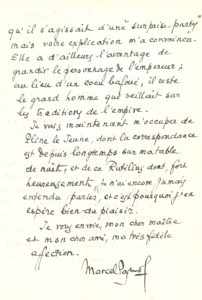 qu'il s'agissait d'une surprise-party
mais votre explication m'a convaincu.
Elle a d'ailleurs l'avantage de
grandir le personnage de l'empereur ;
au lieu d'un cocu bafoué, il reste
le grand homme qui veillait sur
les traditions de l'empire.
Je vais maintenant m'occuper de
Pline le Jeune, dont la correspondance
est depuis longtemps sur ma table
de nuit, et de ce Rutilius dont, fort
heureusement, je n'ai encore jamais
entendu parler, et c'est pourquoi j'en
espère bien du plaisir.
Je vous envoie, mon cher maître
et mon cher ami, ma très fidèle
affection.
Marcel Pagnol